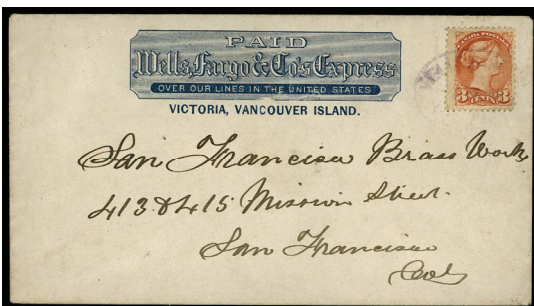 PAID
Wells, Fargo & Co's Express
OVER OUR LINES IN THE UNITED STATES
VICTORIA, VANCOUVER ISLAND.
CANADA POSTAGE
3 CENTS 3
San Francisco Brass Work
413 & 415 Mission Street.
San Francisco
Cal